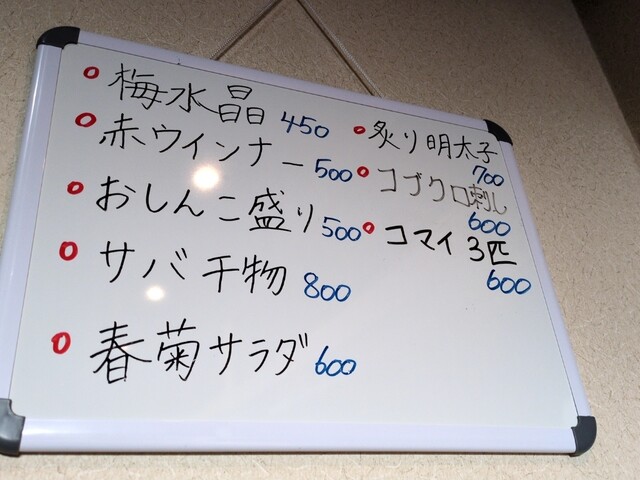 梅水晶 450
赤ウインナー 500
おしんこ盛り 500
サバ干物 800
春菊サラダ 600
炙り明太子 700
コブクロ刺し 600
コマイ3匹 600